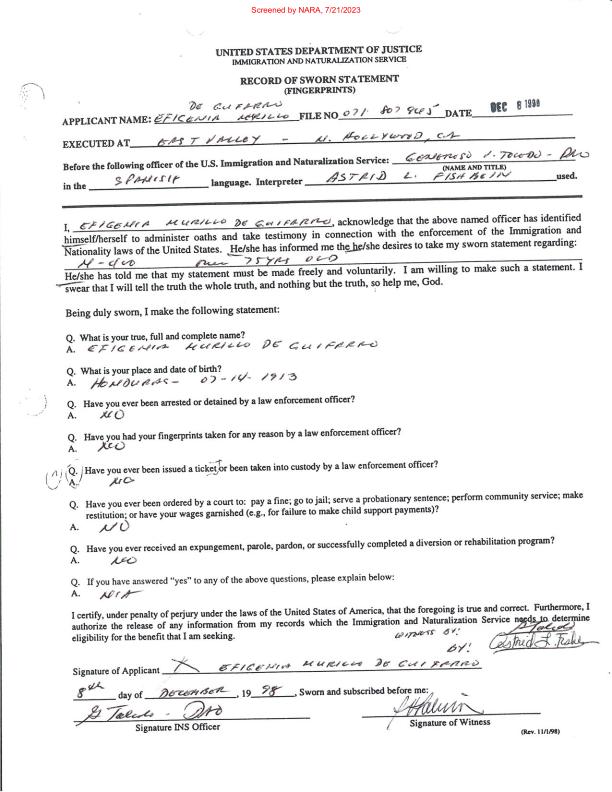 Screened by NARA, 7/21/2023
UNITED STATES DEPARTMENT OF JUSTICE
IMMIGRATION AND NATURALIZATION SERVICE
RECORD OF SWORN STATEMENT
(FINGERPRINTS)
DE GUIFARRO
APPLICANT NAME: EFIGENIA MURILLO FILE NO 071 807 845 DATE DEC 8 1998
EXECUTED AT EAST VALLEY - N. HOLLYWOOD, CA
Before the following officer of the U.S. Immigration and Naturalization Service: GENEROSO V. TOLEDO - DAO
(NAME AND TITLE)
in the SPANISH language. Interpreter ASTRID L. FISHBEIN used.
I, EFIGENIA MURILLO DE GUIFARRO, acknowledge that the above named officer has identified
himself/herself to administer oaths and take testimony in connection with the enforcement of the Immigration and
Nationality laws of the United States. He/she has informed me the he/she desires to take my sworn statement regarding:
N-400 over 75 YRS OLD
He/she has told me that my statement must be made freely and voluntarily. I am willing to make such a statement. I
swear that I will tell the truth the whole truth, and nothing but the truth, so help me, God.
Being duly sworn, I make the following statement:
Q. What is your true, full and complete name?
A. EFIGENIA MURILLO DE GUIFARRO
Q. What is your place and date of birth?
A. HONDURAS - 07-14-1913
Q. Have you ever been arrested or detained by a law enforcement officer?
A. NO
Q. Have you had your fingerprints taken for any reason by a law enforcement officer?
A. NO
Q. Have you ever been issued a ticket or been taken into custody by a law enforcement officer?
A. NO
Q. Have you ever been ordered by a court to: pay a fine; go to jail; serve a probationary sentence; perform community service; make
restitution; or have your wages garnished (e.g., for failure to make child support payments)?
A. NO
Q. Have you ever received an expungement, parole, pardon, or successfully completed a diversion or rehabilitation program?
A. NO
Q. If you have answered "yes" to any of the above questions, please explain below:
A. N/A
I certify, under penalty of perjury under the laws of the United States of America, that the foregoing is true and correct. Furthermore, I
authorize the release of any information from my records which the Immigration and Naturalization Service needs to determine
eligibility for the benefit that I am seeking.
WITNESS BY: G Toledo
BY: Astrid L. Fishbein
Signature of Applicant X EFIGENIA MURILLO DE GUIFARRO
8th day of DECEMBER, 19 98, Sworn and subscribed before me:
G Toledo - DAO
Signature INS Officer
Signature of Witness
(Rev. 11/1/98)